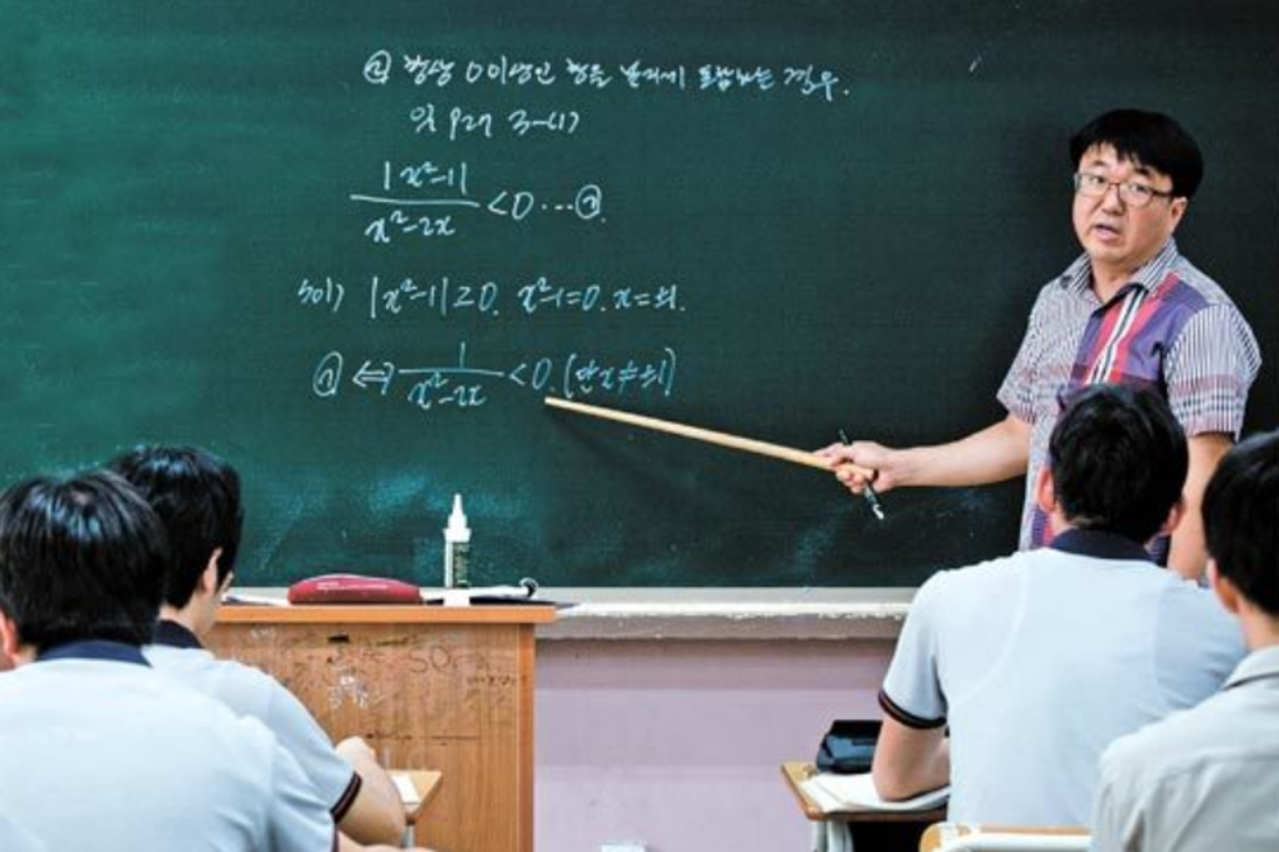 ② 항상 0이상인 항을 분자에 포함하는 경우.
예 P27 3-(1)
|x²-1| / x²-2x < 0 ... ㉠.
풀이) |x²-1| ≥ 0. x²-1=0. x=±1.
㉠ ⇔ 1 / x²-2x < 0. (단 x≠±1)